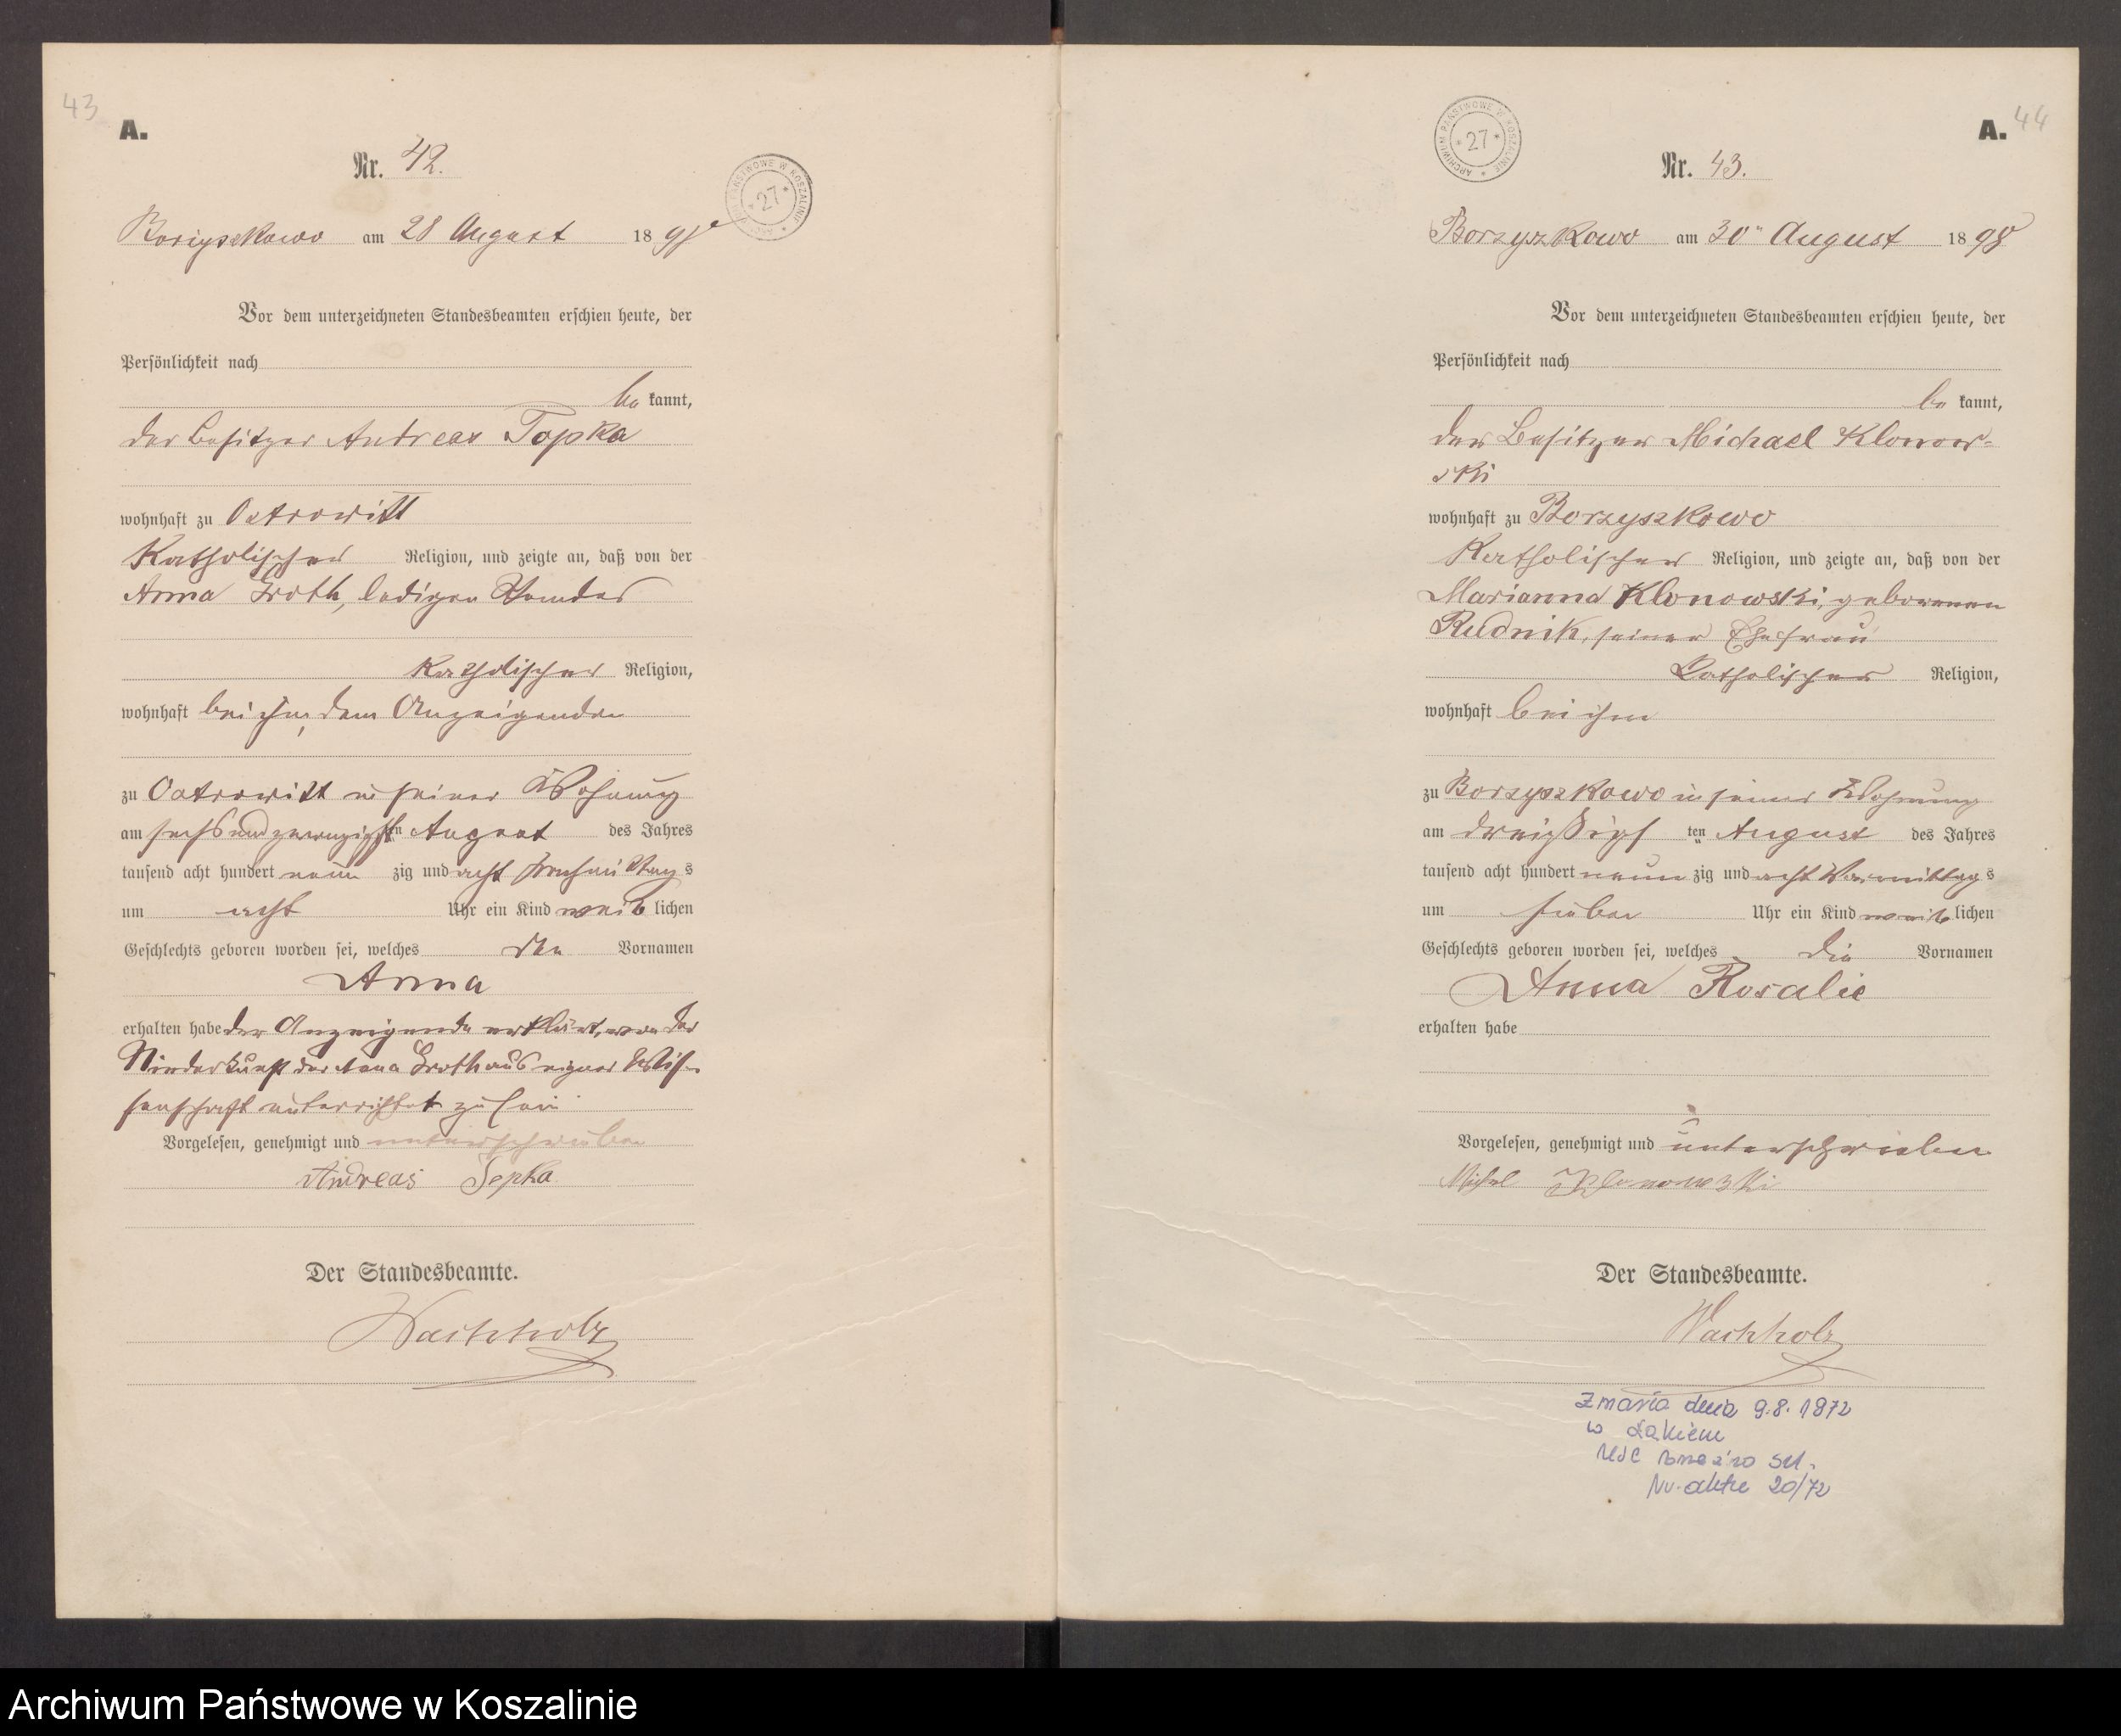 43
A.
Nr. 42.
ARCHIWUM PAŃSTWOWE W KOSZALINIE * 27 *
Borzyszkowo am 28 August 1898
Vor dem unterzeichneten Standesbeamten erschien heute, der
Persönlichkeit nach
be kannt,
der Besitzer Andreas Topka
wohnhaft zu Ostrowitt
Katholischer Religion, und zeigte an, daß von der
Anna Groth, ledigen Standes
Katholischer Religion,
wohnhaft bei ihm, dem Anzeigenden
zu Ostrowitt in seiner Wohnung
am sechs und zwanzigsten August des Jahres
tausend acht hundert neun zig und acht Nachmittag s
um acht Uhr ein Kind weib lichen
Geschlechts geboren worden sei, welches den Vornamen
Anna
erhalten habe der Anzeigende erklärt, von der
Niederkunft der Anna Groth aus eigner Wis-
senschaft unterrichtet zu sein
Vorgelesen, genehmigt und unterschrieben
Andreas Topka
Der Standesbeamte.
Wachholz
44
A.
ARCHIWUM PAŃSTWOWE W KOSZALINIE * 27 *
Nr. 43.
Borzyszkowo am 30" August 1898
Vor dem unterzeichneten Standesbeamten erschien heute, der
Persönlichkeit nach
be kannt,
der Besitzer Michael Klonow-
ski
wohnhaft zu Borzyszkowo
Katholischer Religion, und zeigte an, daß von der
Marianna Klonowski, geborenen
Rudnik, seiner Ehefrau
Katholischer Religion,
wohnhaft bei ihm
zu Borzyszkowo in seiner Wohnung
am dreißigs ten August des Jahres
tausend acht hundert neun zig und acht Vormittag s
um sieben Uhr ein Kind weib lichen
Geschlechts geboren worden sei, welches die Vornamen
Anna Rosalie
erhalten habe
Vorgelesen, genehmigt und unterschrieben
Michael Klonowski
Der Standesbeamte.
Wachholz
Zmarła dnia 9.8.1972
w Łąkiem
USC
Nr. aktu 20/72
Archiwum Państwowe w Koszalinie